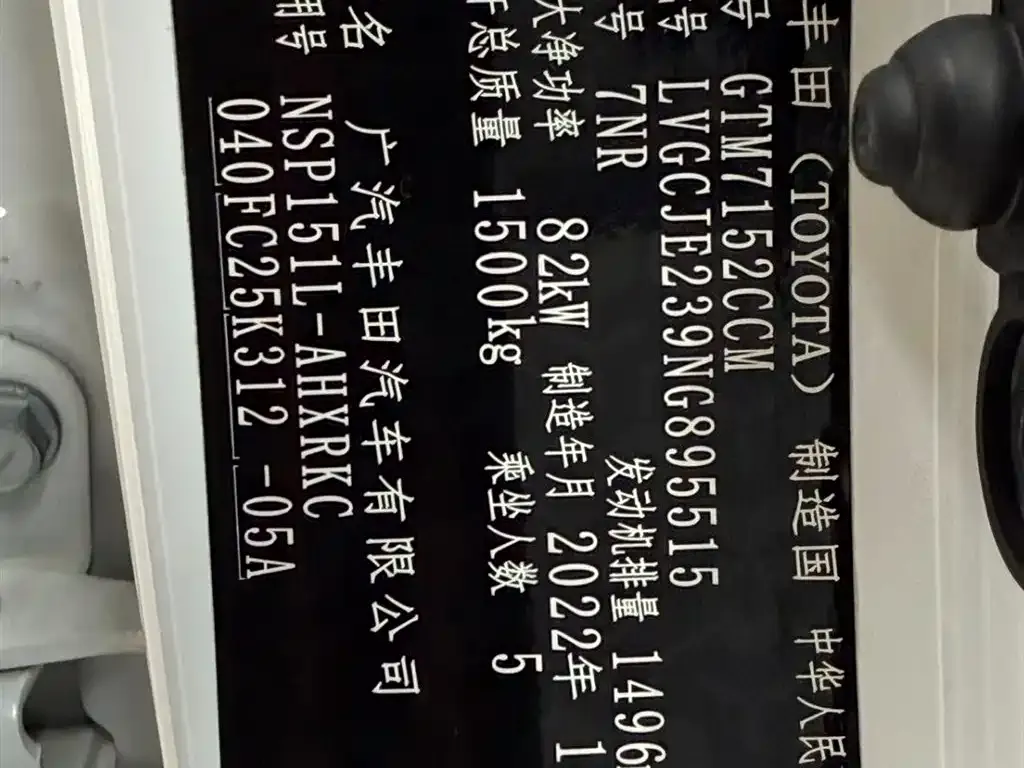 丰田(TOYOTA) 制造国 中华人民
号 GTM7152CCM
号 LVGCJE239NG895515
号 7NR 发动机排量 1496
大净功率 82kW 制造年月 2022年 1
总质量 1500kg 乘坐人数 5
名 广汽丰田汽车有限公司
用号 NSP151L-AHXRKC
040FC25K312 -05A